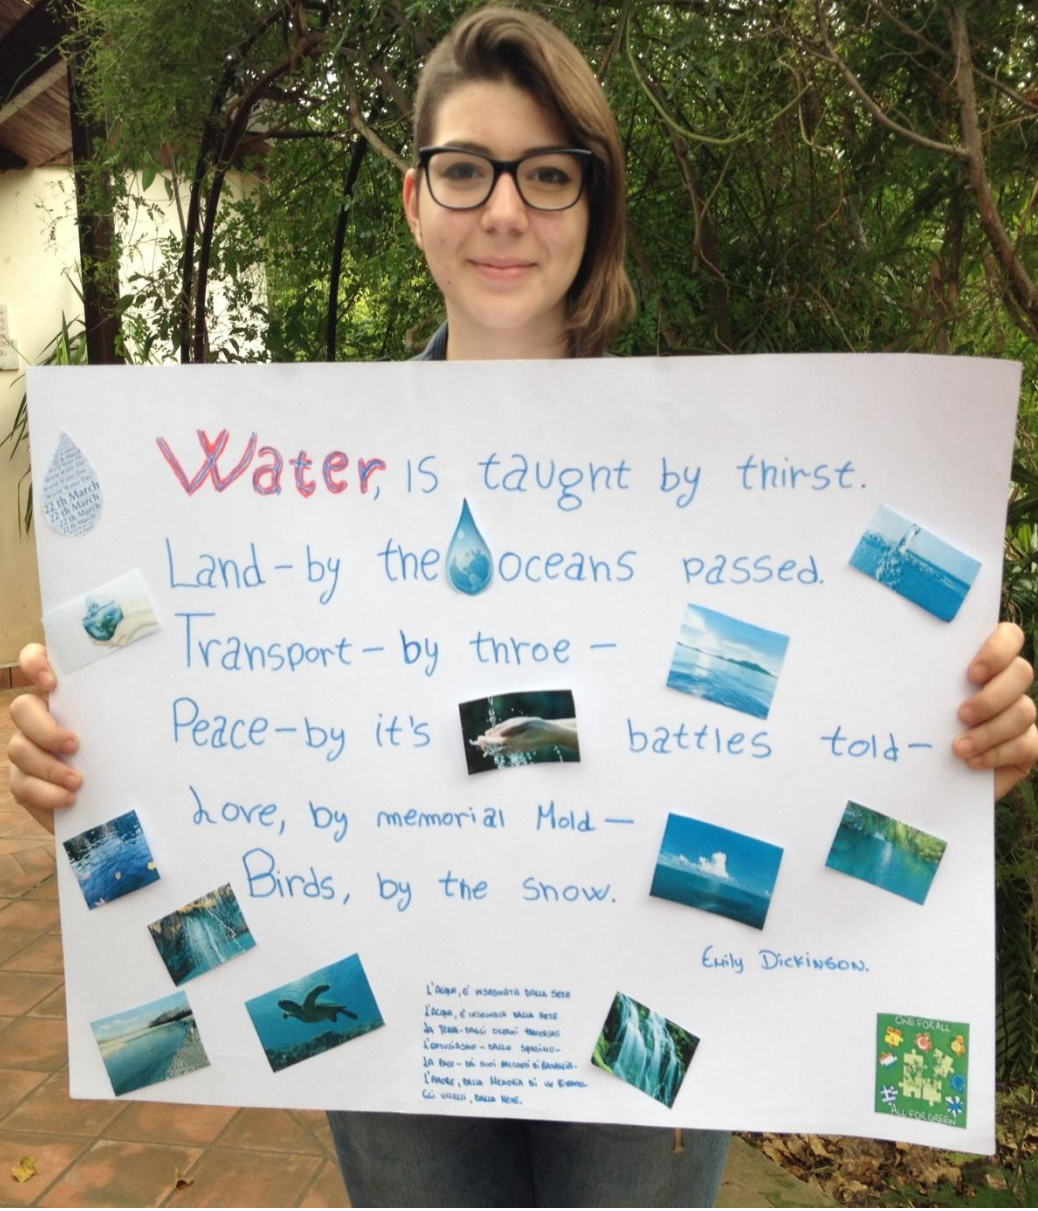 World Water Day
22th March
22th March
22th March
22th March
Water, is taught by thirst.
Land - by the oceans passed.
Transport - by throe -
Peace - by it's battles told -
Love, by memorial Mold -
Birds, by the snow.
Emily Dickinson.
L'acqua, è insegnata dalla sete
L'acqua, è insegnata dalla sete.
La terra - dagli oceani traversati
L'entusiasmo - dallo spasimo -
La pace - dai suoi racconti di battaglia -
L'amore, dalla memoria di un
Gli uccelli, dalla neve.
ONE FOR ALL
ALL FOR GREEN